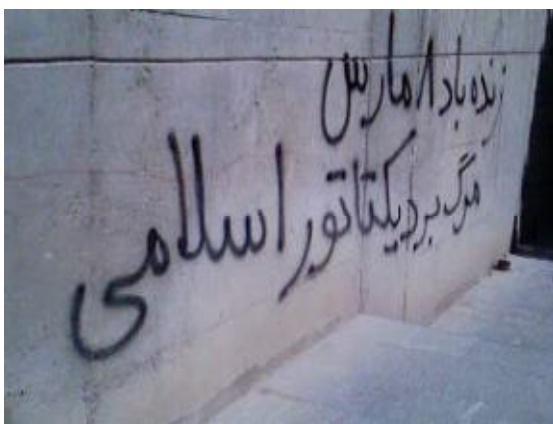 زنده باد ۸ مارس
مرگ بر دیکتاتور اسلامی